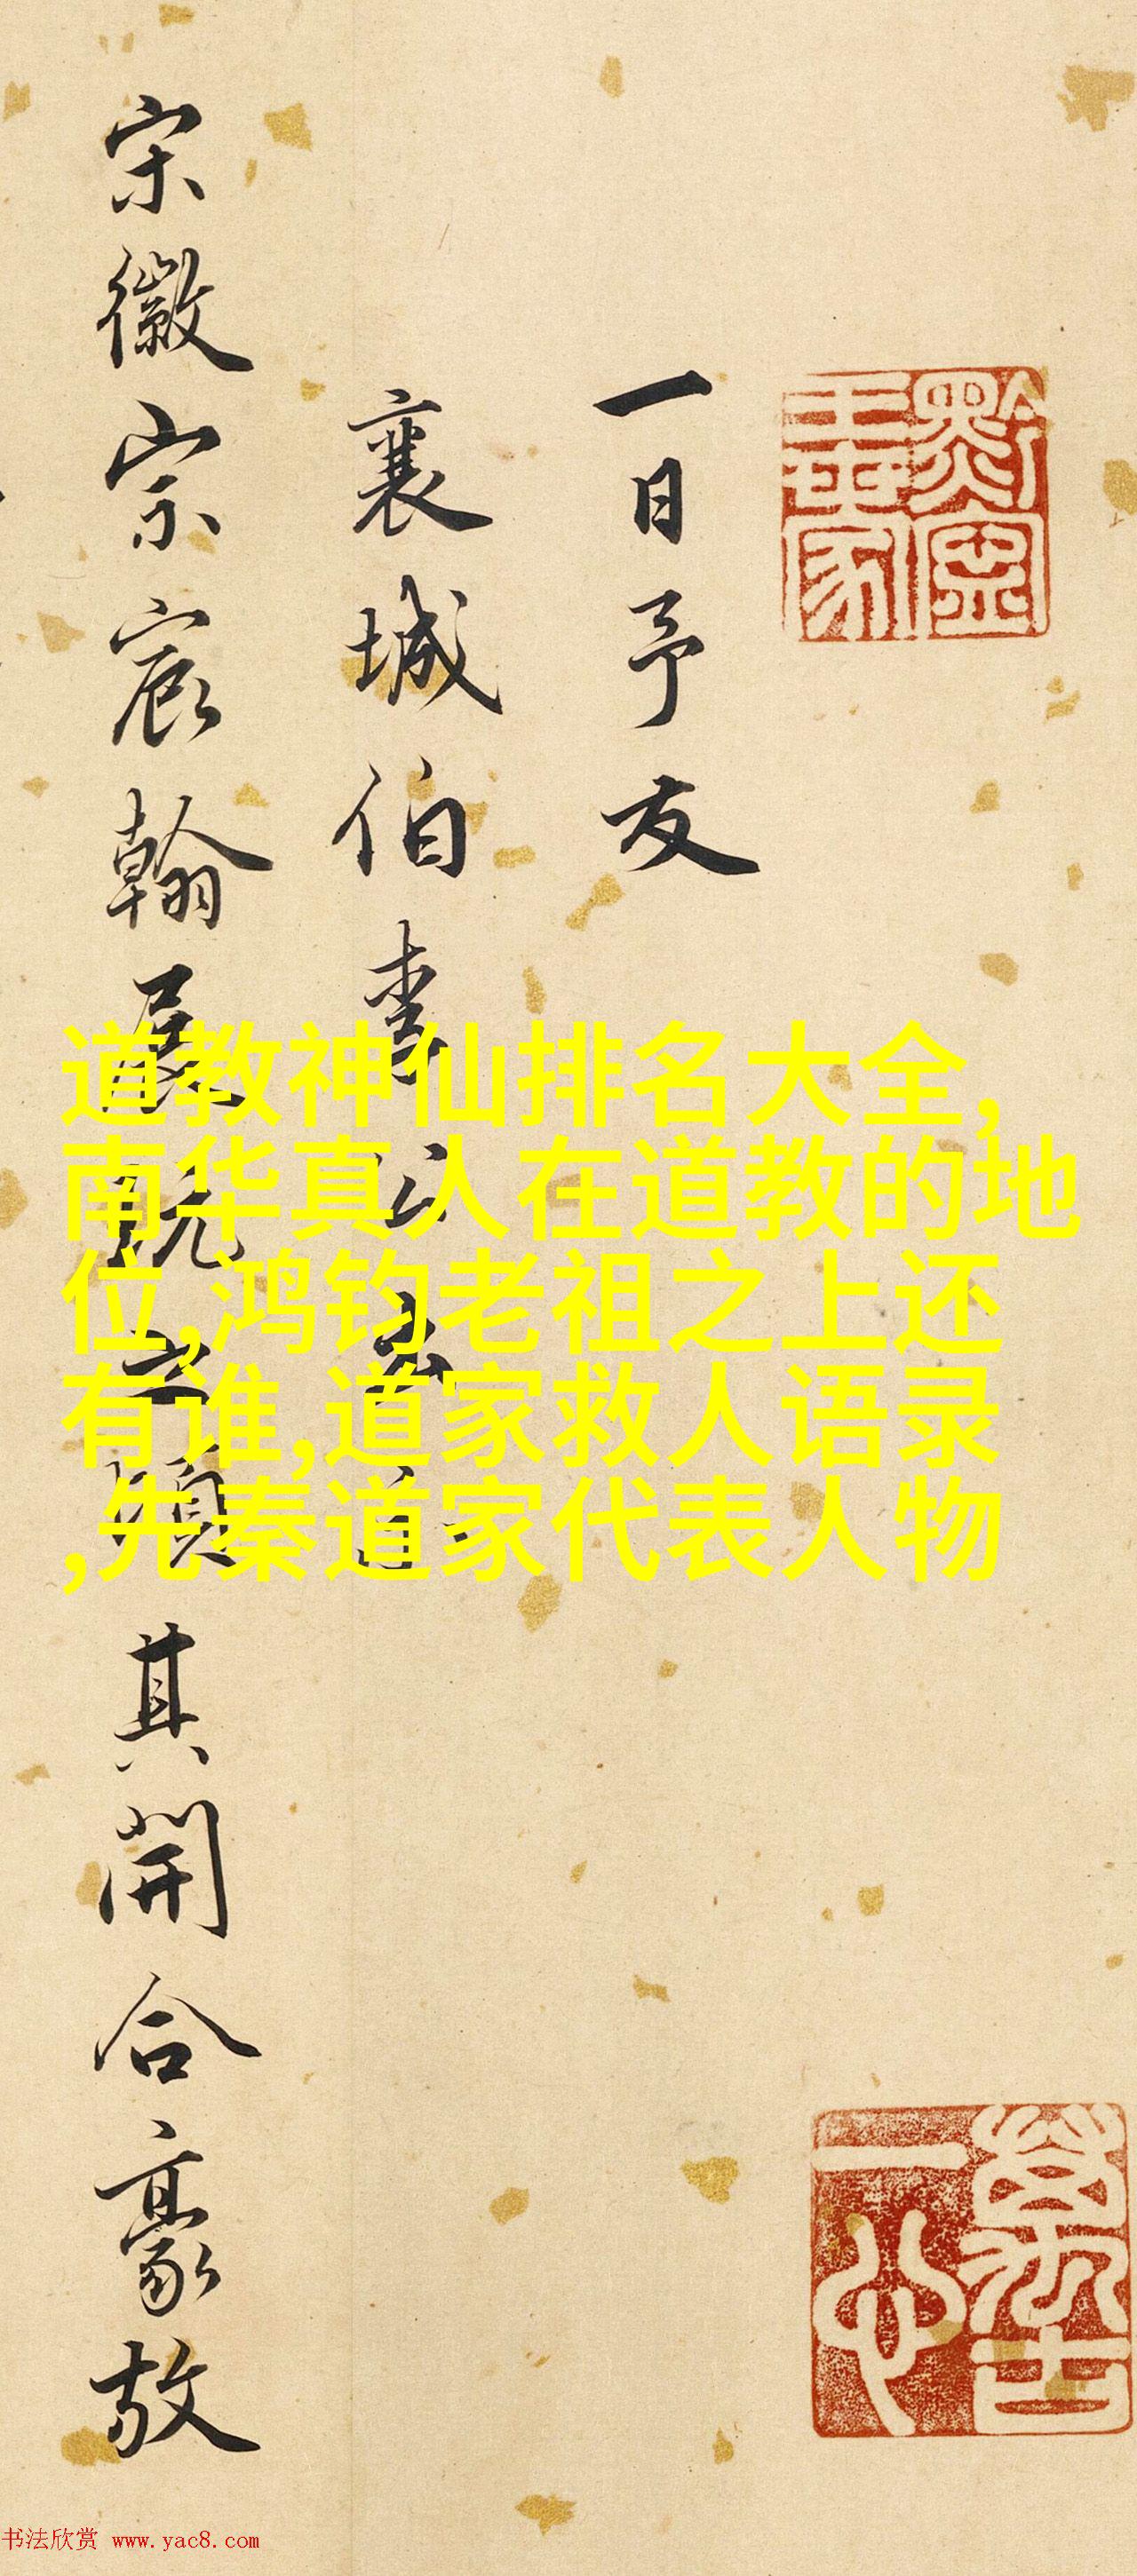 黔寧王世家
一日予友
襄城伯李公
宋徽宗宸翰展玩之頃其開合豪放
萬古一心
道教神仙排名大全,
南华真人在道教的地
位,鸿钧老祖之上还
有谁,道家救人语录
,先秦道家代表人物
书法欣赏 www.yac8.com